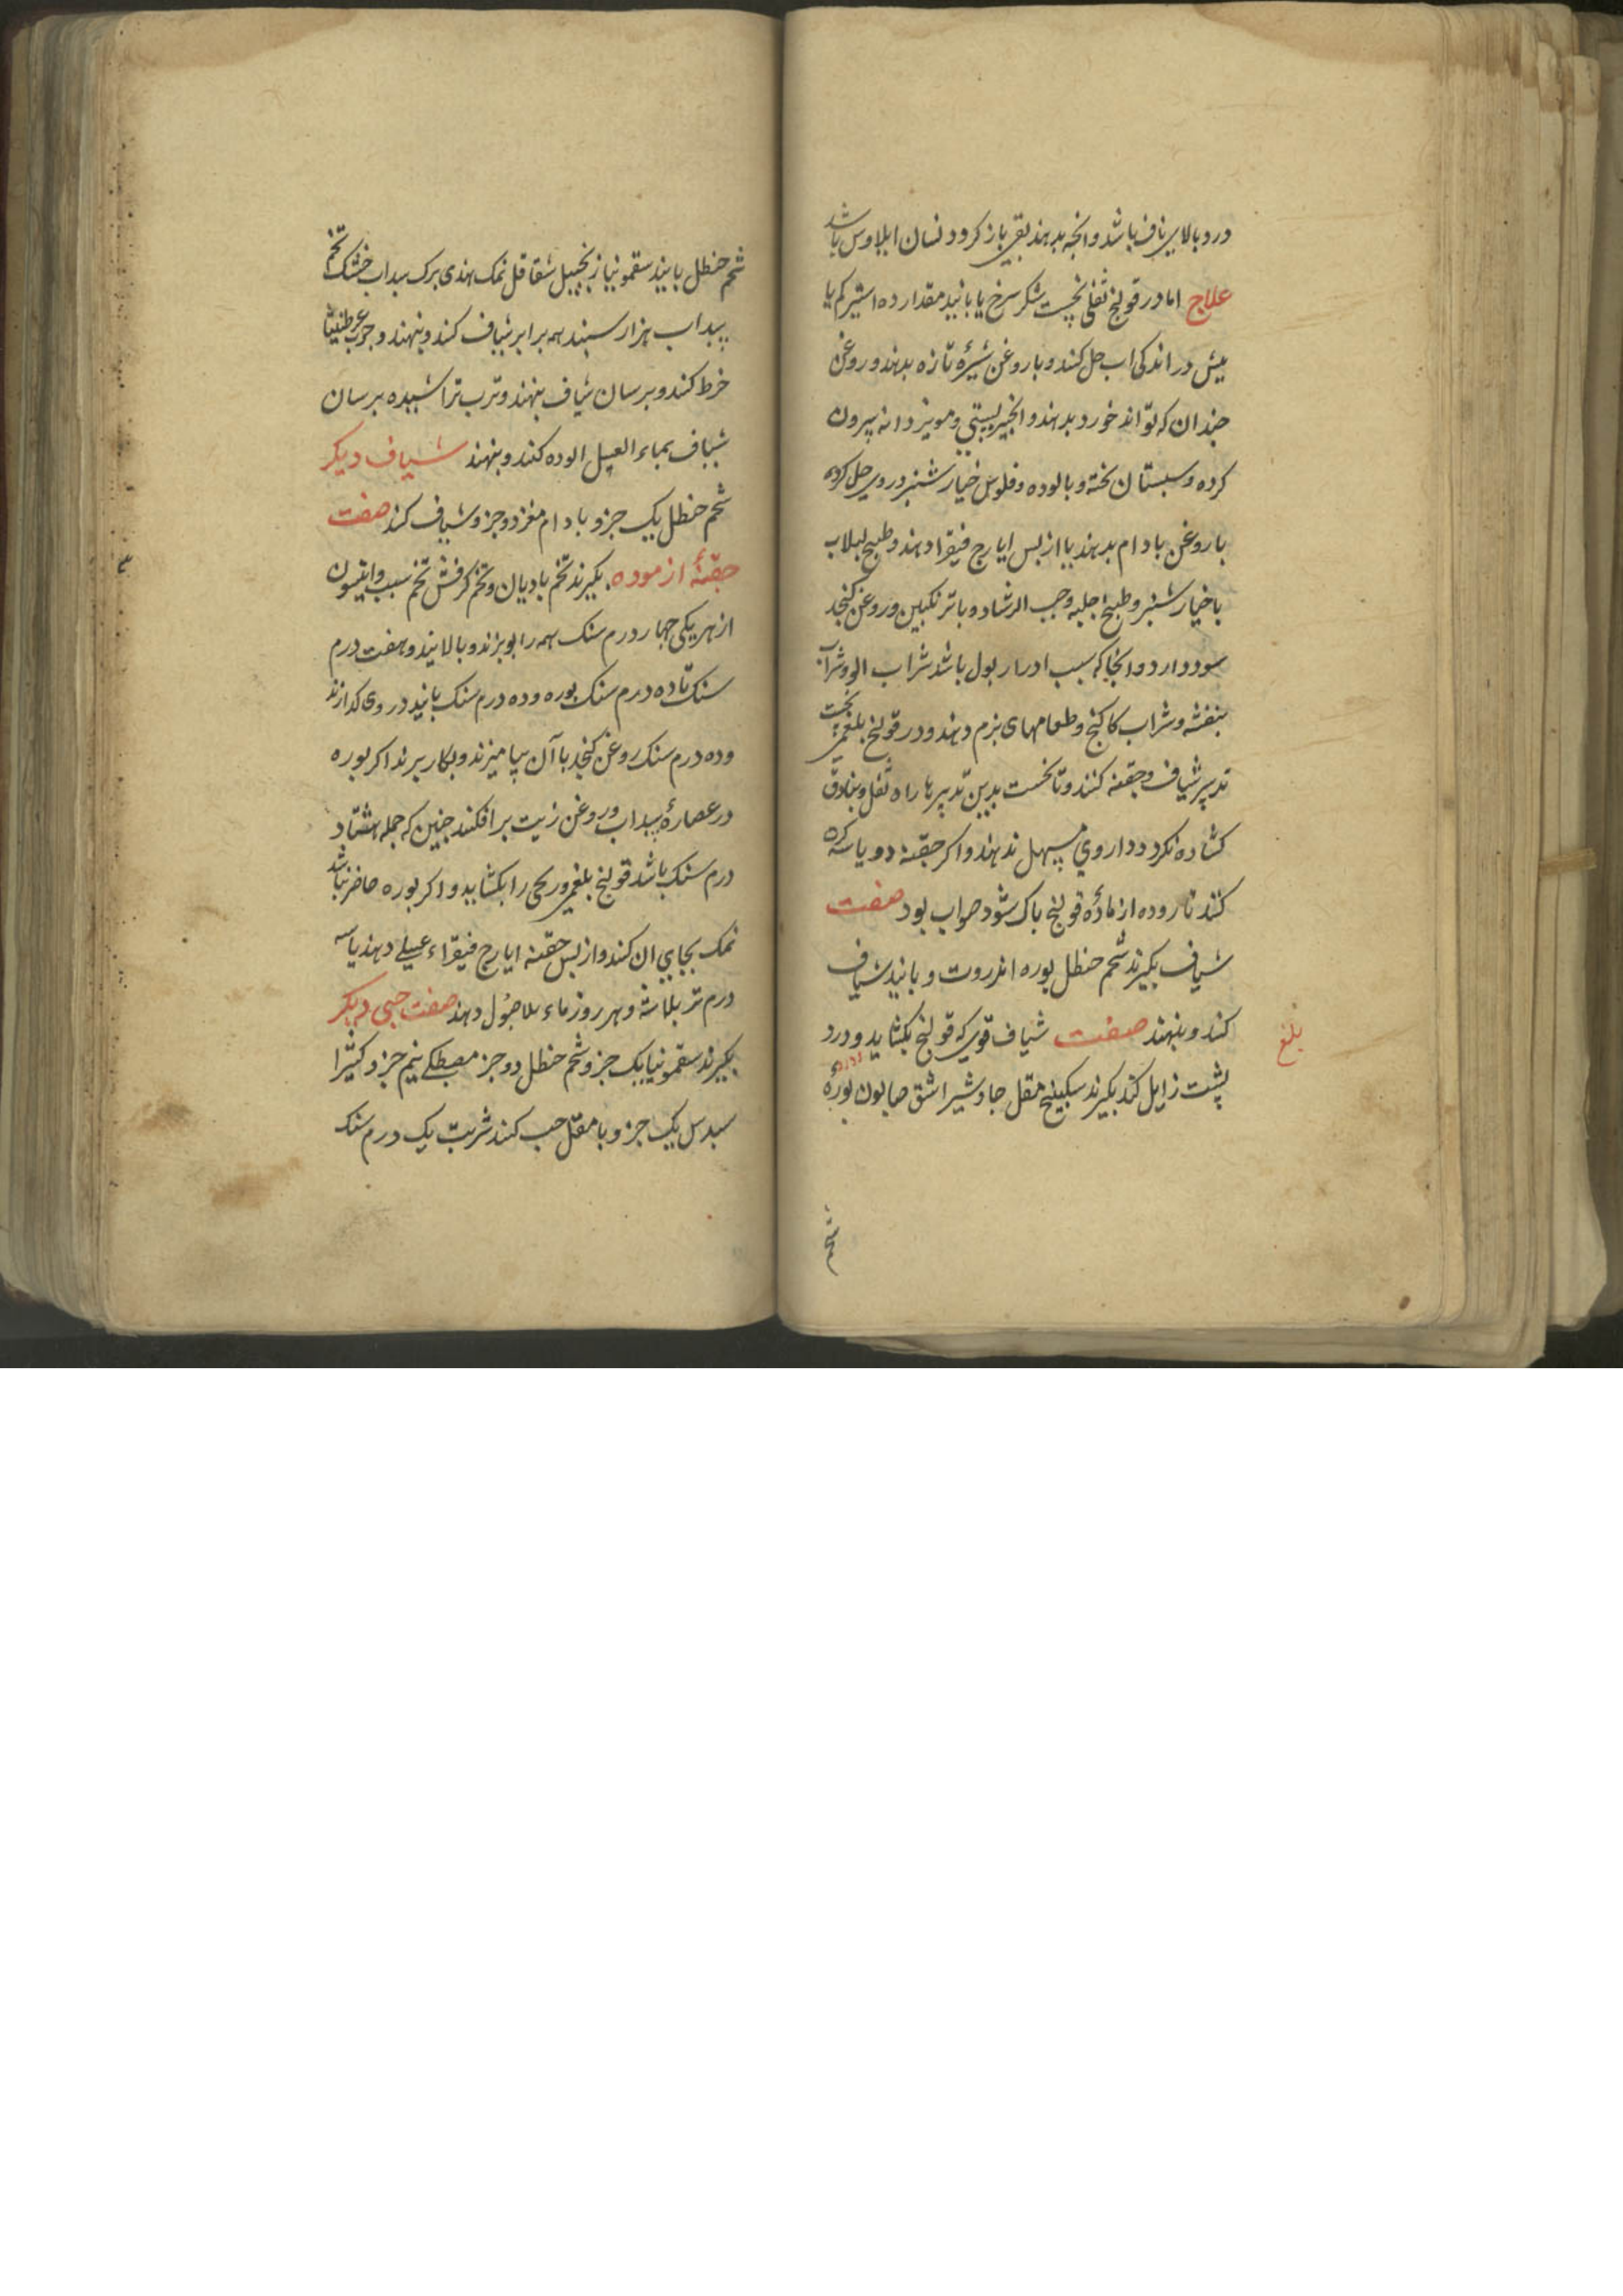 درد بالای ناف باشد وانچه بدهند بقی باز کردد نسان ایلاوس باشد
علاج اما در قولنج ثفلی نخست شکر سرخ یا بانید مقدار ده استیر کم یا
بیش در اندکی اب حل کنند و با روغن شیرهٔ تازه بدهند و روغن
جندان که تواند خورد بدهند و انجیر بستی و مویز دانه بیرون
کرده و سبستان بخته و بالوده و فلوس خیارشنبر در وی حل کرده
با روغن بادام بدهند یا از بس ایارج فیقرا دهند و طبیخ لبلاب
با خیارشنبر و طبیخ حلبه و حب الرشاد و با ترنکبین و روغن کنجد
سود دارد و انجا که سبب ادرار بول باشد شراب الو و شراب
بنفشه و شراب کاکنج و طعامهای نرم دهند و در قولنج بلغمی نخست
تدبیر شیاف و حقنه کنند و تا نخست بدین تدبیرها راه ثفل و بنادق
کشاده نکردد داروی مسهل ندهند و اکر حقنه دو یا سه کره
کنند تا روده از مادهٔ قولنج باک شود صواب بود صفت
شیاف بکیرند شحم حنظل بوره انزروت و بانید شیاف
کنند و بنهند صفت شیاف قوی که قولنج بکشاید و درد
بلغ
پشت زایل کند بکیرند سکبینج مقل جاوشیر اشق صابون بوره
شحم
شحم حنظل بانید سقمونیا زنجبیل شقاقل نمک هندی برک سداب خشک تخم
سداب هزار سبند همه برابر شیاف کنند و بنهند و جوب عرطنیثا
خرط کنند و برسان شیاف بنهند و ترب تراشیده برسان
شیاف بماء العسل الوده کنند و بنهند شیاف دیکر
شحم حنظل یک جزو بادام مغز دو جزو شیاف کنند صفت
حقنهٔ ازموده بکیرند تخم بادیان و تخم کرفش تخم سبب وافتیمون
از هر یکی جهار درم سنک همه را بوبزند و بالایند و هفت درم
سنک تا ده درم سنک بوره و ده درم سنک بانید در وی کدازند
و ده درم سنک روغن کنجد با آن بیامیزند و بکار برند اکر بوره
در عصارهٔ سداب و روغن زیت برافکنند جنین که جمله هشتاد
درم سنک باشد قولنج بلغمی و ریحی را بکشاید و اکر بوره حاضر نباشد
نمک بجای ان کنند و از بس حقنه ایارج فیقراء عسلی دهند یا سه
درم تر بلاشه و هر روز ماء الاصول دهند صفت حبی دیکر
بکیرند سقمونیا یک جزو شحم حنظل دو جزو مصطکی نیم جزو کتیرا
سدس یک جزو با مقل حب کنند شربت یک درم سنک